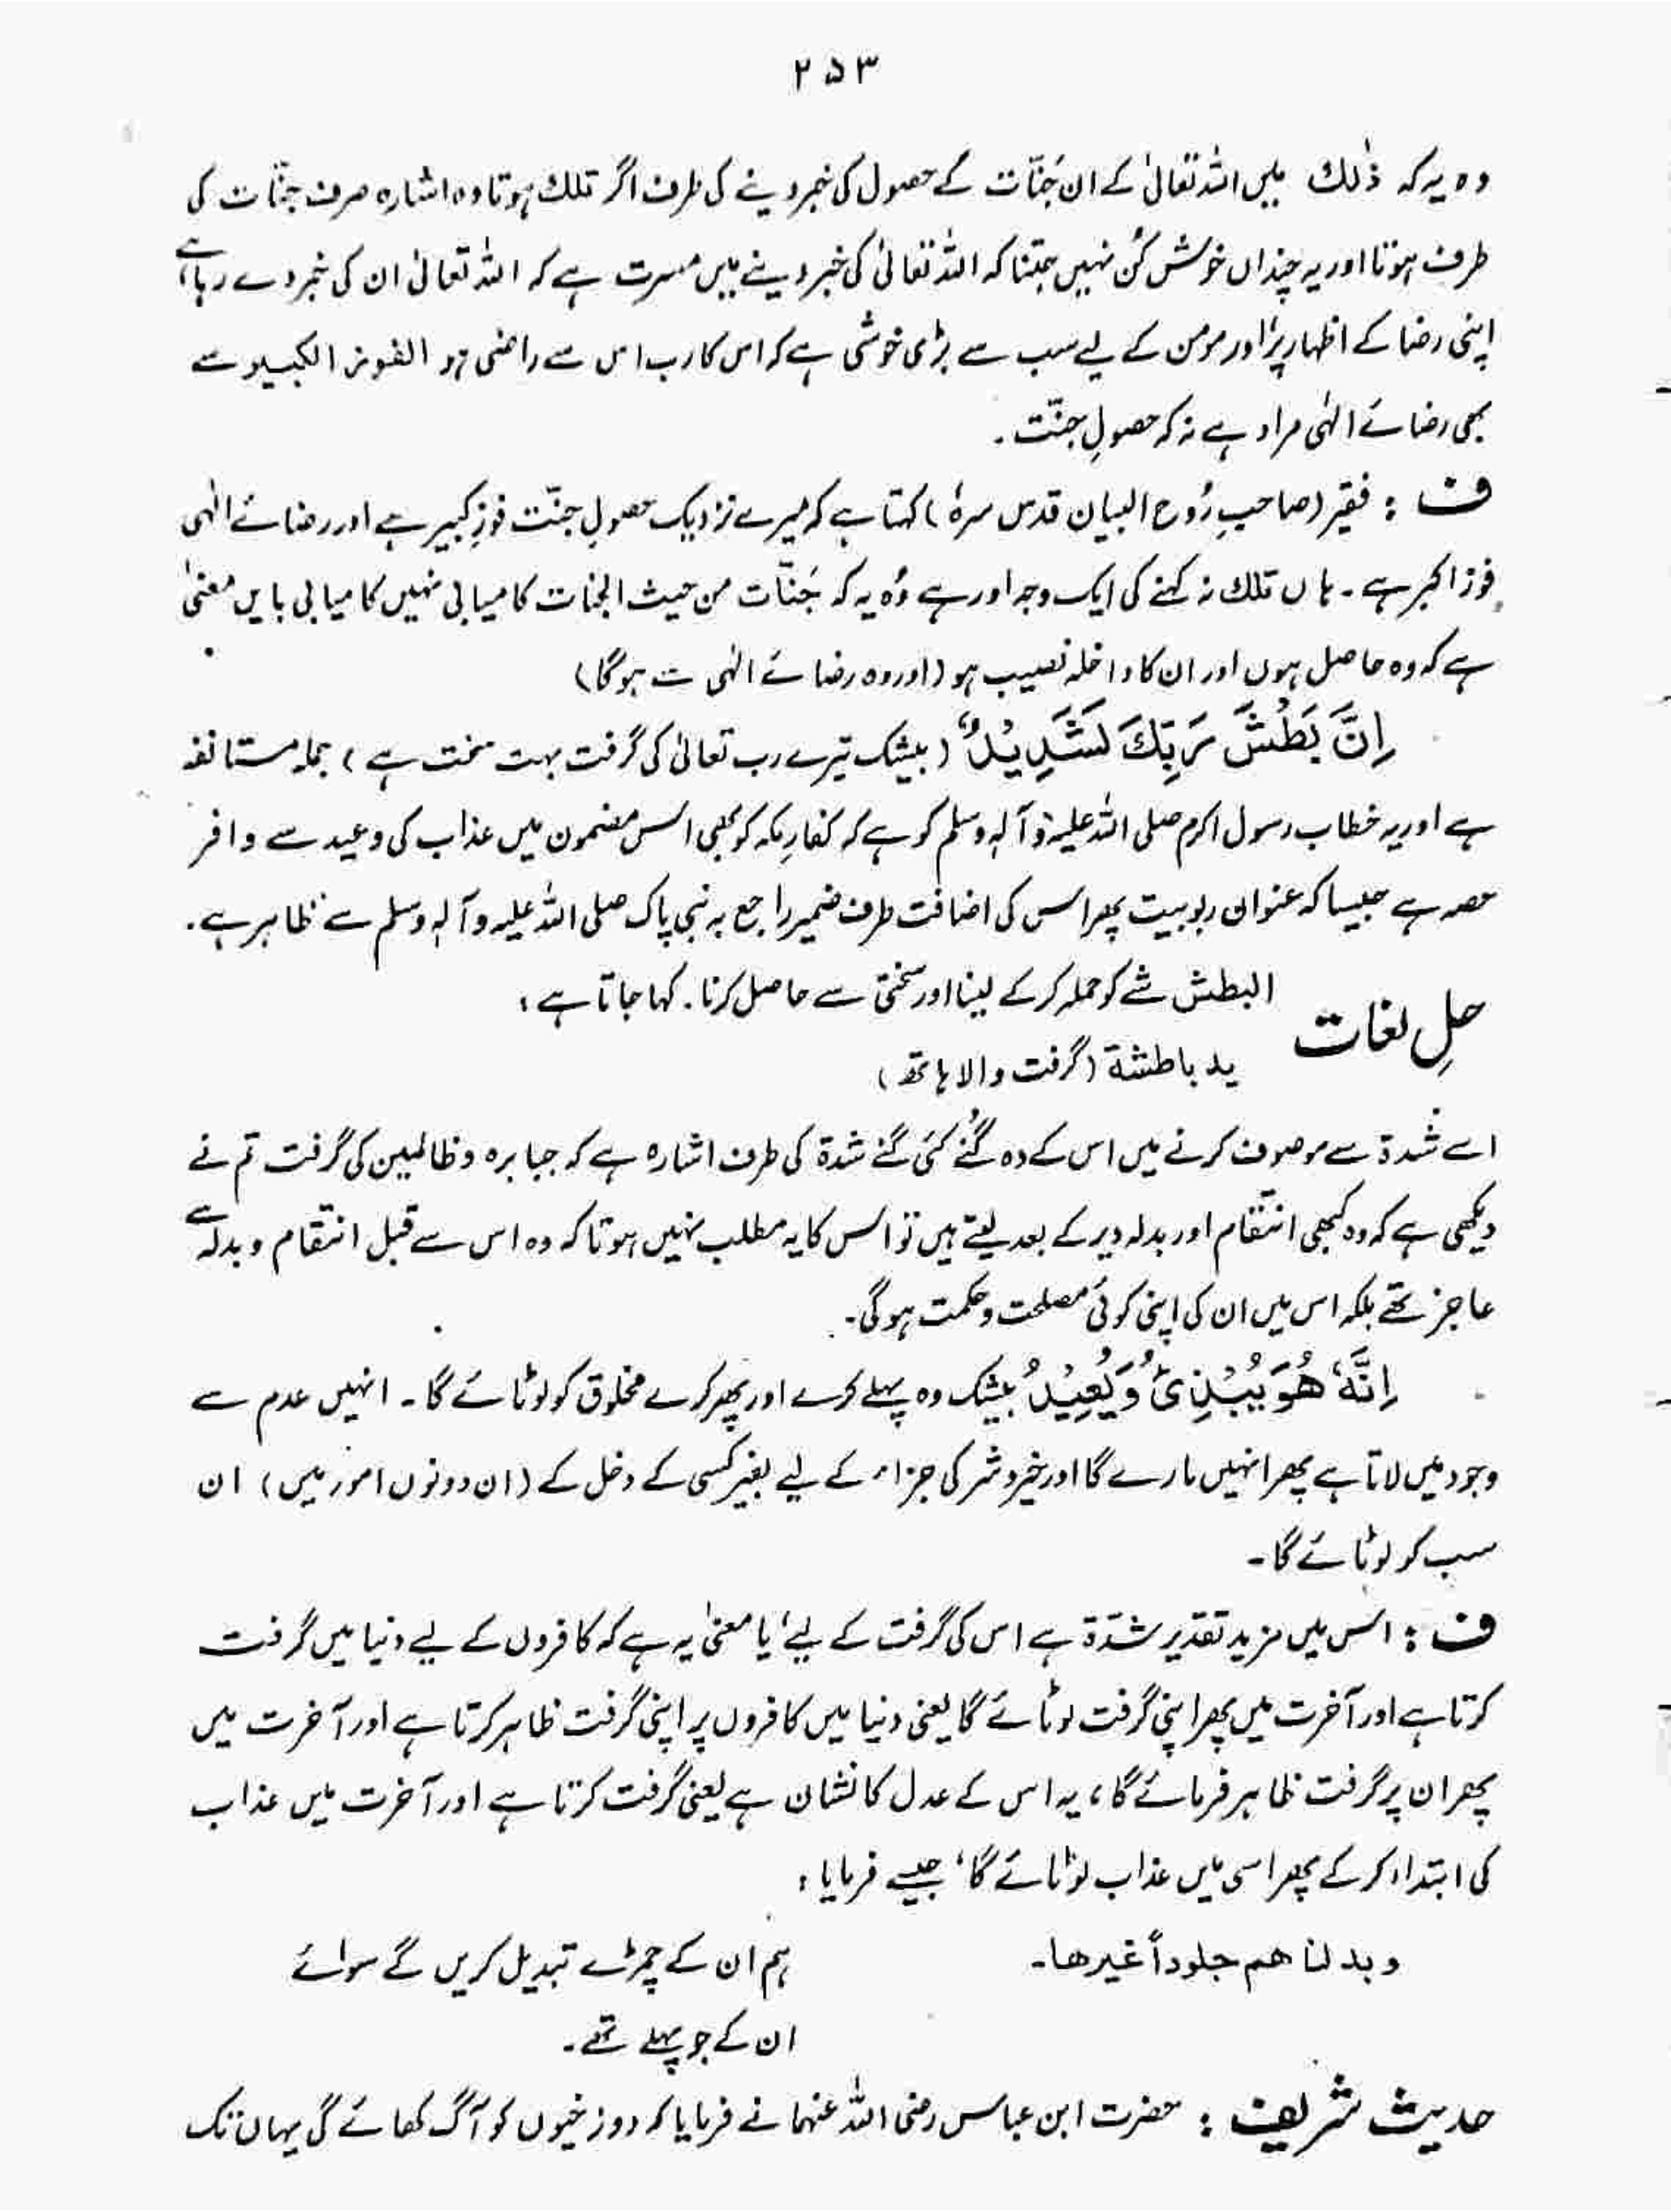 ۲۵۳
وہ یہ کہ ذٰلك میں اللہ تعالیٰ کے ان جَنّات کے حصول کی خبر دینے کی طرف اگر تلك ہوتا وہ اشارہ صرف جنّات کی
طرف ہوتا اور یہ چنداں خوش کُن نہیں جتنا کہ اللہ تعالیٰ کی خبر دینے میں مسرت ہے کہ اللہ تعالیٰ ان کی خبر دے رہا ہے
اپنی رضا کے اظہار پر، اور مومن کے لیے سب سے بڑی خوشی ہے کہ اس کا رب اس سے راضی ہو الفوز الکبیر سے
بھی رضائے الٰہی مراد ہے نہ کہ حصولِ جنّت ۔
ف : فقیر (صاحبِ رُوح البیان قدس سرہٗ) کہتا ہے کہ میرے نزدیک حصولِ جنّت فوزِ کبیر ہے اور رضائے الٰہی
فوزِ اکبر ہے ۔ ہاں تلك نہ کہنے کی ایک وجہ اور ہے وُہ یہ کہ جَنّات من حیث الجنات کامیابی نہیں کامیابی بایں معنیٰ
ہے کہ وہ حاصل ہوں اور ان کا داخلہ نصیب ہو (اور وہ رضائے الٰہی ت ہوگا)
اِنَّ بَطْشَ رَبِّكَ لَشَدِیْدٌ (بیشک تیرے رب تعالیٰ کی گرفت بہت سخت ہے) جملہ مستانفہ
ہے اور یہ خطاب رسول اکرم صلی اللہ علیہ وآلہٖ وسلم کو ہے کہ کفارِ مکہ کو بھی اس مضمون میں عذاب کی وعید سے وافر
حصہ ہے جیسا کہ عنوان ربوبیت پھر اس کی اضافت طرف ضمیر راجع بہ نبی پاک صلی اللہ علیہ وآلہٖ وسلم سے ظاہر ہے ۔
حلِ لغات البطش شے کو حملہ کر کے لینا اور سختی سے حاصل کرنا ۔ کہا جاتا ہے :
ید باطشة (گرفت والا ہاتھ)
اسے شدة سے موصوف کرنے میں اس کے دہ گُنے کئی گنے شدة کی طرف اشارہ ہے کہ جبابرہ و ظالمین کی گرفت تم نے
دیکھی ہے کہ وہ کبھی انتقام اور بدلہ دیر کے بعد لیتے ہیں تو اس کا یہ مطلب نہیں ہوتا کہ وہ اس سے قبل انتقام و بدلہ سے
عاجز تھے بلکہ اس میں ان کی اپنی کوئی مصلحت و حکمت ہوگی ۔
اِنَّهٗ هُوَ یُبْدِئُ وَیُعِیْدُ بیشک وہ پہلے کرے اور پھر کرے مخلوق کو لوٹائے گا ۔ انہیں عدم سے
وجود میں لاتا ہے پھر انہیں مارے گا اور خیر و شر کی جزاء کے لیے بغیر کسی کے دخل کے (ان دونوں امور میں) ان
سب کو لوٹائے گا ۔
ف : اس میں مزید تقدیر شدّة ہے اس کی گرفت کے لیے، یا معنیٰ یہ ہے کہ کافروں کے لیے دنیا میں گرفت
کرتا ہے اور آخرت میں پھر اپنی گرفت لوٹائے گا یعنی دنیا میں کافروں پر اپنی گرفت ظاہر کرتا ہے اور آخرت میں
پھر ان پر گرفت ظاہر فرمائے گا، یہ اس کے عدل کا نشان ہے یعنی گرفت کرتا ہے اور آخرت میں عذاب
کی ابتداء کر کے پھر اسی میں عذاب لوٹائے گا، جیسے فرمایا :
وبدلنا هم جلوداً غیرها ۔ ہم ان کے چمڑے تبدیل کریں گے سوائے
ان کے جو پہلے تھے ۔
حدیث شریف : حضرت ابن عباس رضی اللہ عنہما نے فرمایا کہ دوزخیوں کو آگ کھائے گی یہاں تک